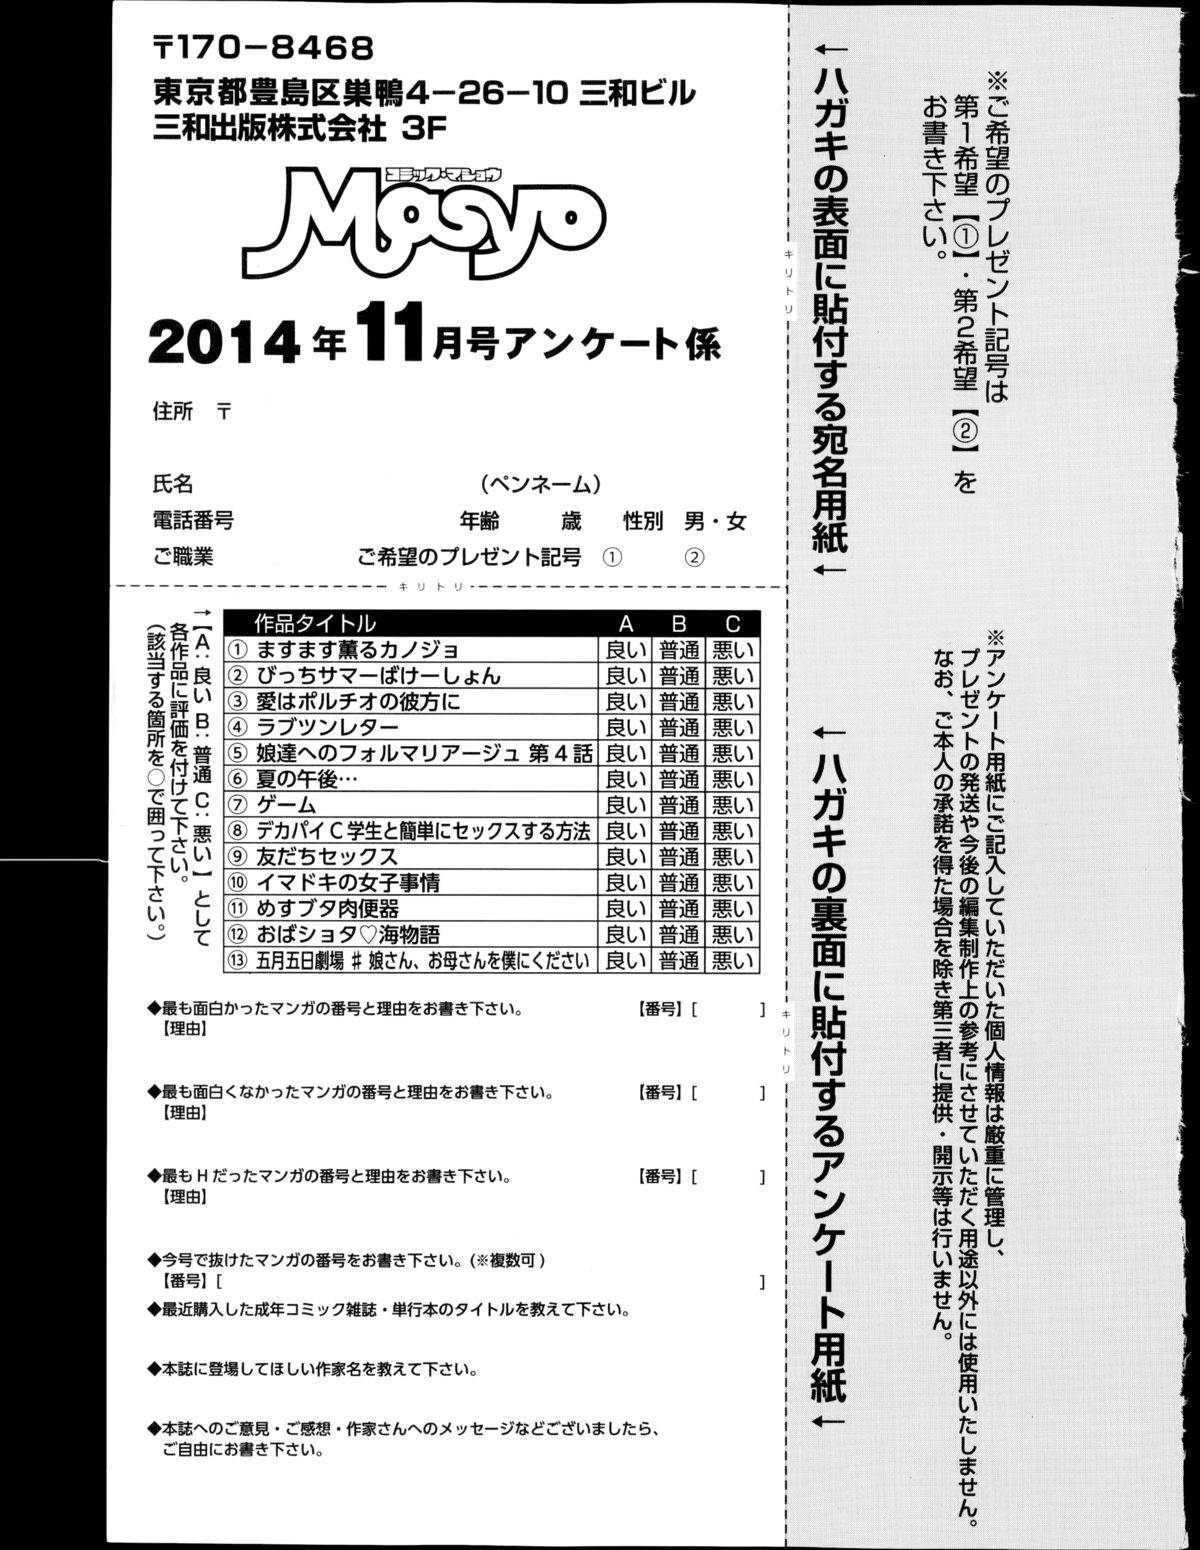 〒170−8468
東京都豊島区巣鴨4−26−10 三和ビル
三和出版株式会社 3F
コミック・マショウ
Masyo
2014年11月号アンケート係
住所 〒
氏名 (ペンネーム)
電話番号 年齢 歳 性別 男・女
ご職業 ご希望のプレゼント記号 ① ②
キリトリ
→【A：良い B：普通 C：悪い】として
各作品に評価を付けて下さい。
(該当する箇所を○で囲って下さい。)
作品タイトル A B C
① ますます薫るカノジョ 良い 普通 悪い
② びっちサマーばけーしょん 良い 普通 悪い
③ 愛はポルチオの彼方に 良い 普通 悪い
④ ラブツンレター 良い 普通 悪い
⑤ 娘達へのフォルマリアージュ 第4話 良い 普通 悪い
⑥ 夏の午後… 良い 普通 悪い
⑦ ゲーム 良い 普通 悪い
⑧ デカパイC学生と簡単にセックスする方法 良い 普通 悪い
⑨ 友だちセックス 良い 普通 悪い
⑩ イマドキの女子事情 良い 普通 悪い
⑪ めすブタ肉便器 良い 普通 悪い
⑫ おばショタ♡海物語 良い 普通 悪い
⑬ 五月五日劇場 ♯ 娘さん、お母さんを僕にください 良い 普通 悪い
◆最も面白かったマンガの番号と理由をお書き下さい。 【番号】[ ]
【理由】
◆最も面白くなかったマンガの番号と理由をお書き下さい。 【番号】[ ]
【理由】
◆最もHだったマンガの番号と理由をお書き下さい。 【番号】[ ]
【理由】
◆今号で抜けたマンガの番号をお書き下さい。(※複数可)
【番号】[ ]
◆最近購入した成年コミック雑誌・単行本のタイトルを教えて下さい。
◆本誌に登場してほしい作家名を教えて下さい。
◆本誌へのご意見・ご感想・作家さんへのメッセージなどございましたら、
ご自由にお書き下さい。
キリトリ
キリトリ
←ハガキの表面に貼付する宛名用紙←
※ご希望のプレゼント記号は
第1希望【①】・第2希望【②】を
お書き下さい。
←ハガキの裏面に貼付するアンケート用紙←
※アンケート用紙にご記入していただいた個人情報は厳重に管理し、
プレゼントの発送や今後の編集制作上の参考にさせていただく用途以外には使用いたしません。
なお、ご本人の承諾を得た場合を除き第三者に提供・開示等は行いません。